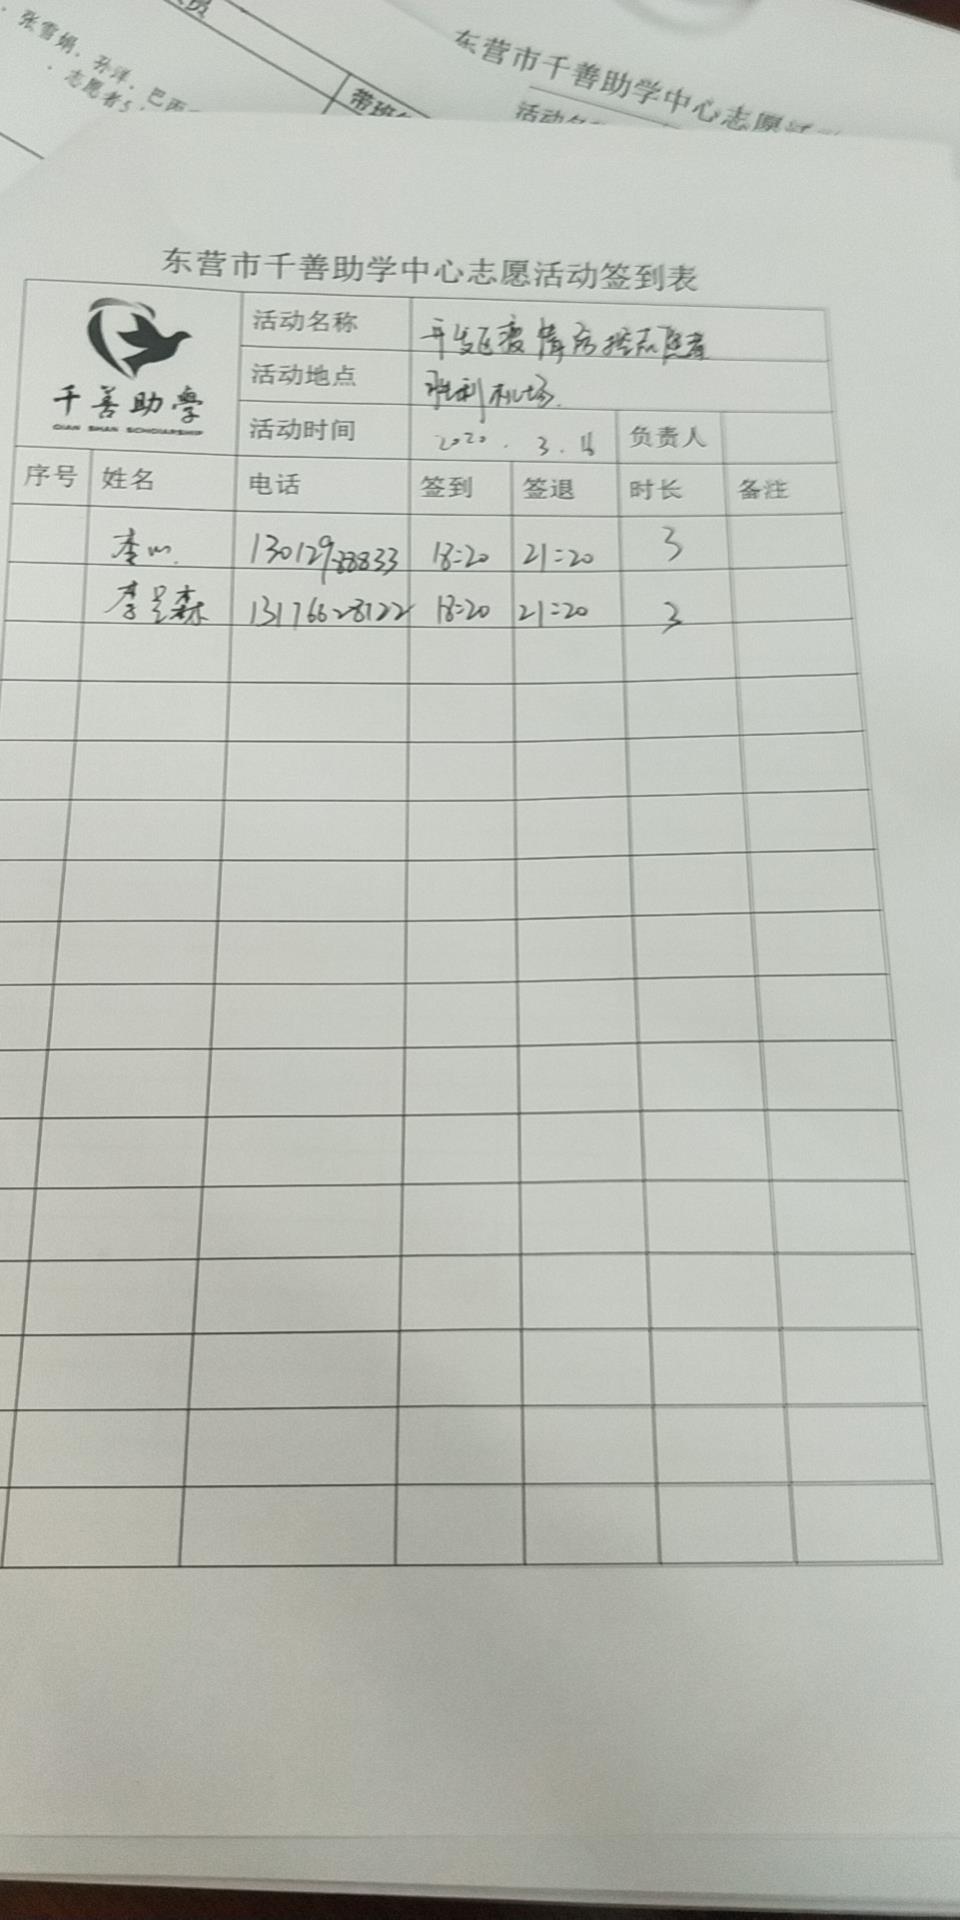 张雪娟、孙洋、巴雨
志愿者5
带班
东营市千善助学中心志愿活
活动名
东营市千善助学中心志愿活动签到表
千善助學
QIAN SHAN SCHOLARSHIP
活动名称 开发区疫情防控志愿者
活动地点 胜利机场
活动时间 2020.3. 负责人
序号 姓名 电话 签到 签退 时长 备注
李 13012988833 18:20 21:20 3
李呈森 13176628122 18:20 21:20 3